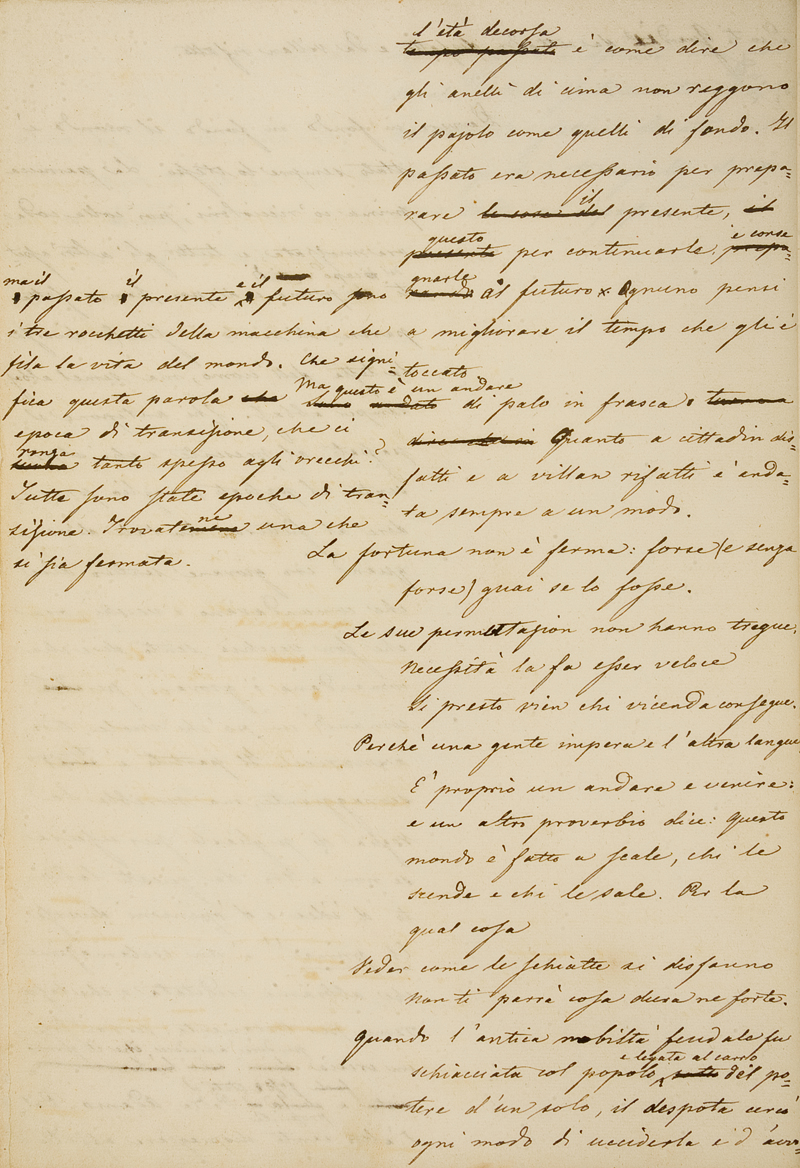 l'età decorsa
tempo passato è come dire che
gli anelli di cima non reggono
il pajolo come quelli di fondo. Il
passato era necessario per prepa=
il
rare le cose del presente, il
questo e corse
presente per continuarle, prepa=
gnarle
al futuro. Ognuno pensi
a migliorare il tempo che gli è
toccato
ma il il e il
passato presente futuro sono
i tre rocchetti della macchina che
fila la vita del mondo. Che signi=
fica questa parola che
epoca di transisione, che ci
ronza
tanto spesso agli orecchi?
Tutte sono state epoche di tran=
ne
sisione. Trovatemene una che
si sia fermata.
Ma questo è un andare
di palo in frasca.
Quanto a cittadin dis=
fatti e a villan rifatti è anda=
ta sempre a un modo.
La fortuna non è ferma: forse (e senza
forse) guai se lo fosse.
Le sue permutasion non hanno tregue.
Necessità la fa esser veloce
Si presto vien chi vicenda consegue.
Perchè una gente impera e l'altra langue,
È proprio un andare e venire:
e un altro proverbio dice: Questo
mondo è fatto a scale, chi le
scende e chi le sale. Per la
qual cosa
Veder come le schiatte si disfanno
Non ti parrà cosa dura ne forte.
Quando l'antica nobiltà feudale fu
e legata al carro
schiacciata col popolo, sotto del po=
tere d'un solo, il despota cercò
ogni modo di ucciderla e d'avvi=